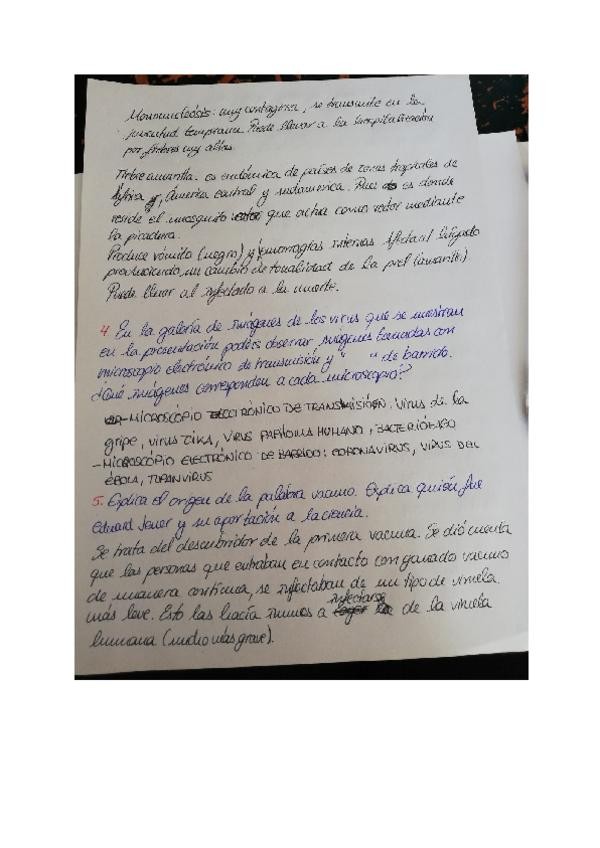 Mononucleósis: muy contagiosa, se transmite en la
juventud temprana. Puede llevar a la hospitalización
por fiebres muy altas.
Fiebre amarilla. es endémica de países de zonas tropicales de
África y, América central y sudamerica. Pues es donde
reside el mosquito que actua como vector mediante
la picadura.
Produce vómito (negro) y hemorragias internas. Afecta al hígado
produciendo un cambio de tonalidad de la piel (amarilla).
Puede llevar al infectado a la muerte.
4. En la galería de imágenes de los virus que se muestran
en la presentación podéis observar imágenes tomadas con
microscopio electrónico de transmisión y " " de barrido.
¿Qué imágenes corresponden a cada microscopio?
-MICROSCOPIO ELECTRÓNICO DE TRANSMISIÓN. Virus de la
gripe, VIRUS ZIKA, VIRUS PAPILOMA HUMANO, BACTERIÓFAGO
-MICROSCÓPIO ELECTRÓNICO DE BARRIDO: CORONAVIRUS, VIRUS DEL
ÉBOLA, TUPANVIRUS
5. Explica el origen de la palabra vacuna. Explica quién fue
Eduard Jenner y su aportación a la ciencia.
Se trata del descubridor de la primera vacuna. Se dió cuenta
que las personas que entraban en contacto con ganado vacuno
de manera continua, se infectaban de un tipo de viruela
más leve. Esto las hacía inmunes a infectarse de la viruela
humana (mucho más grave).